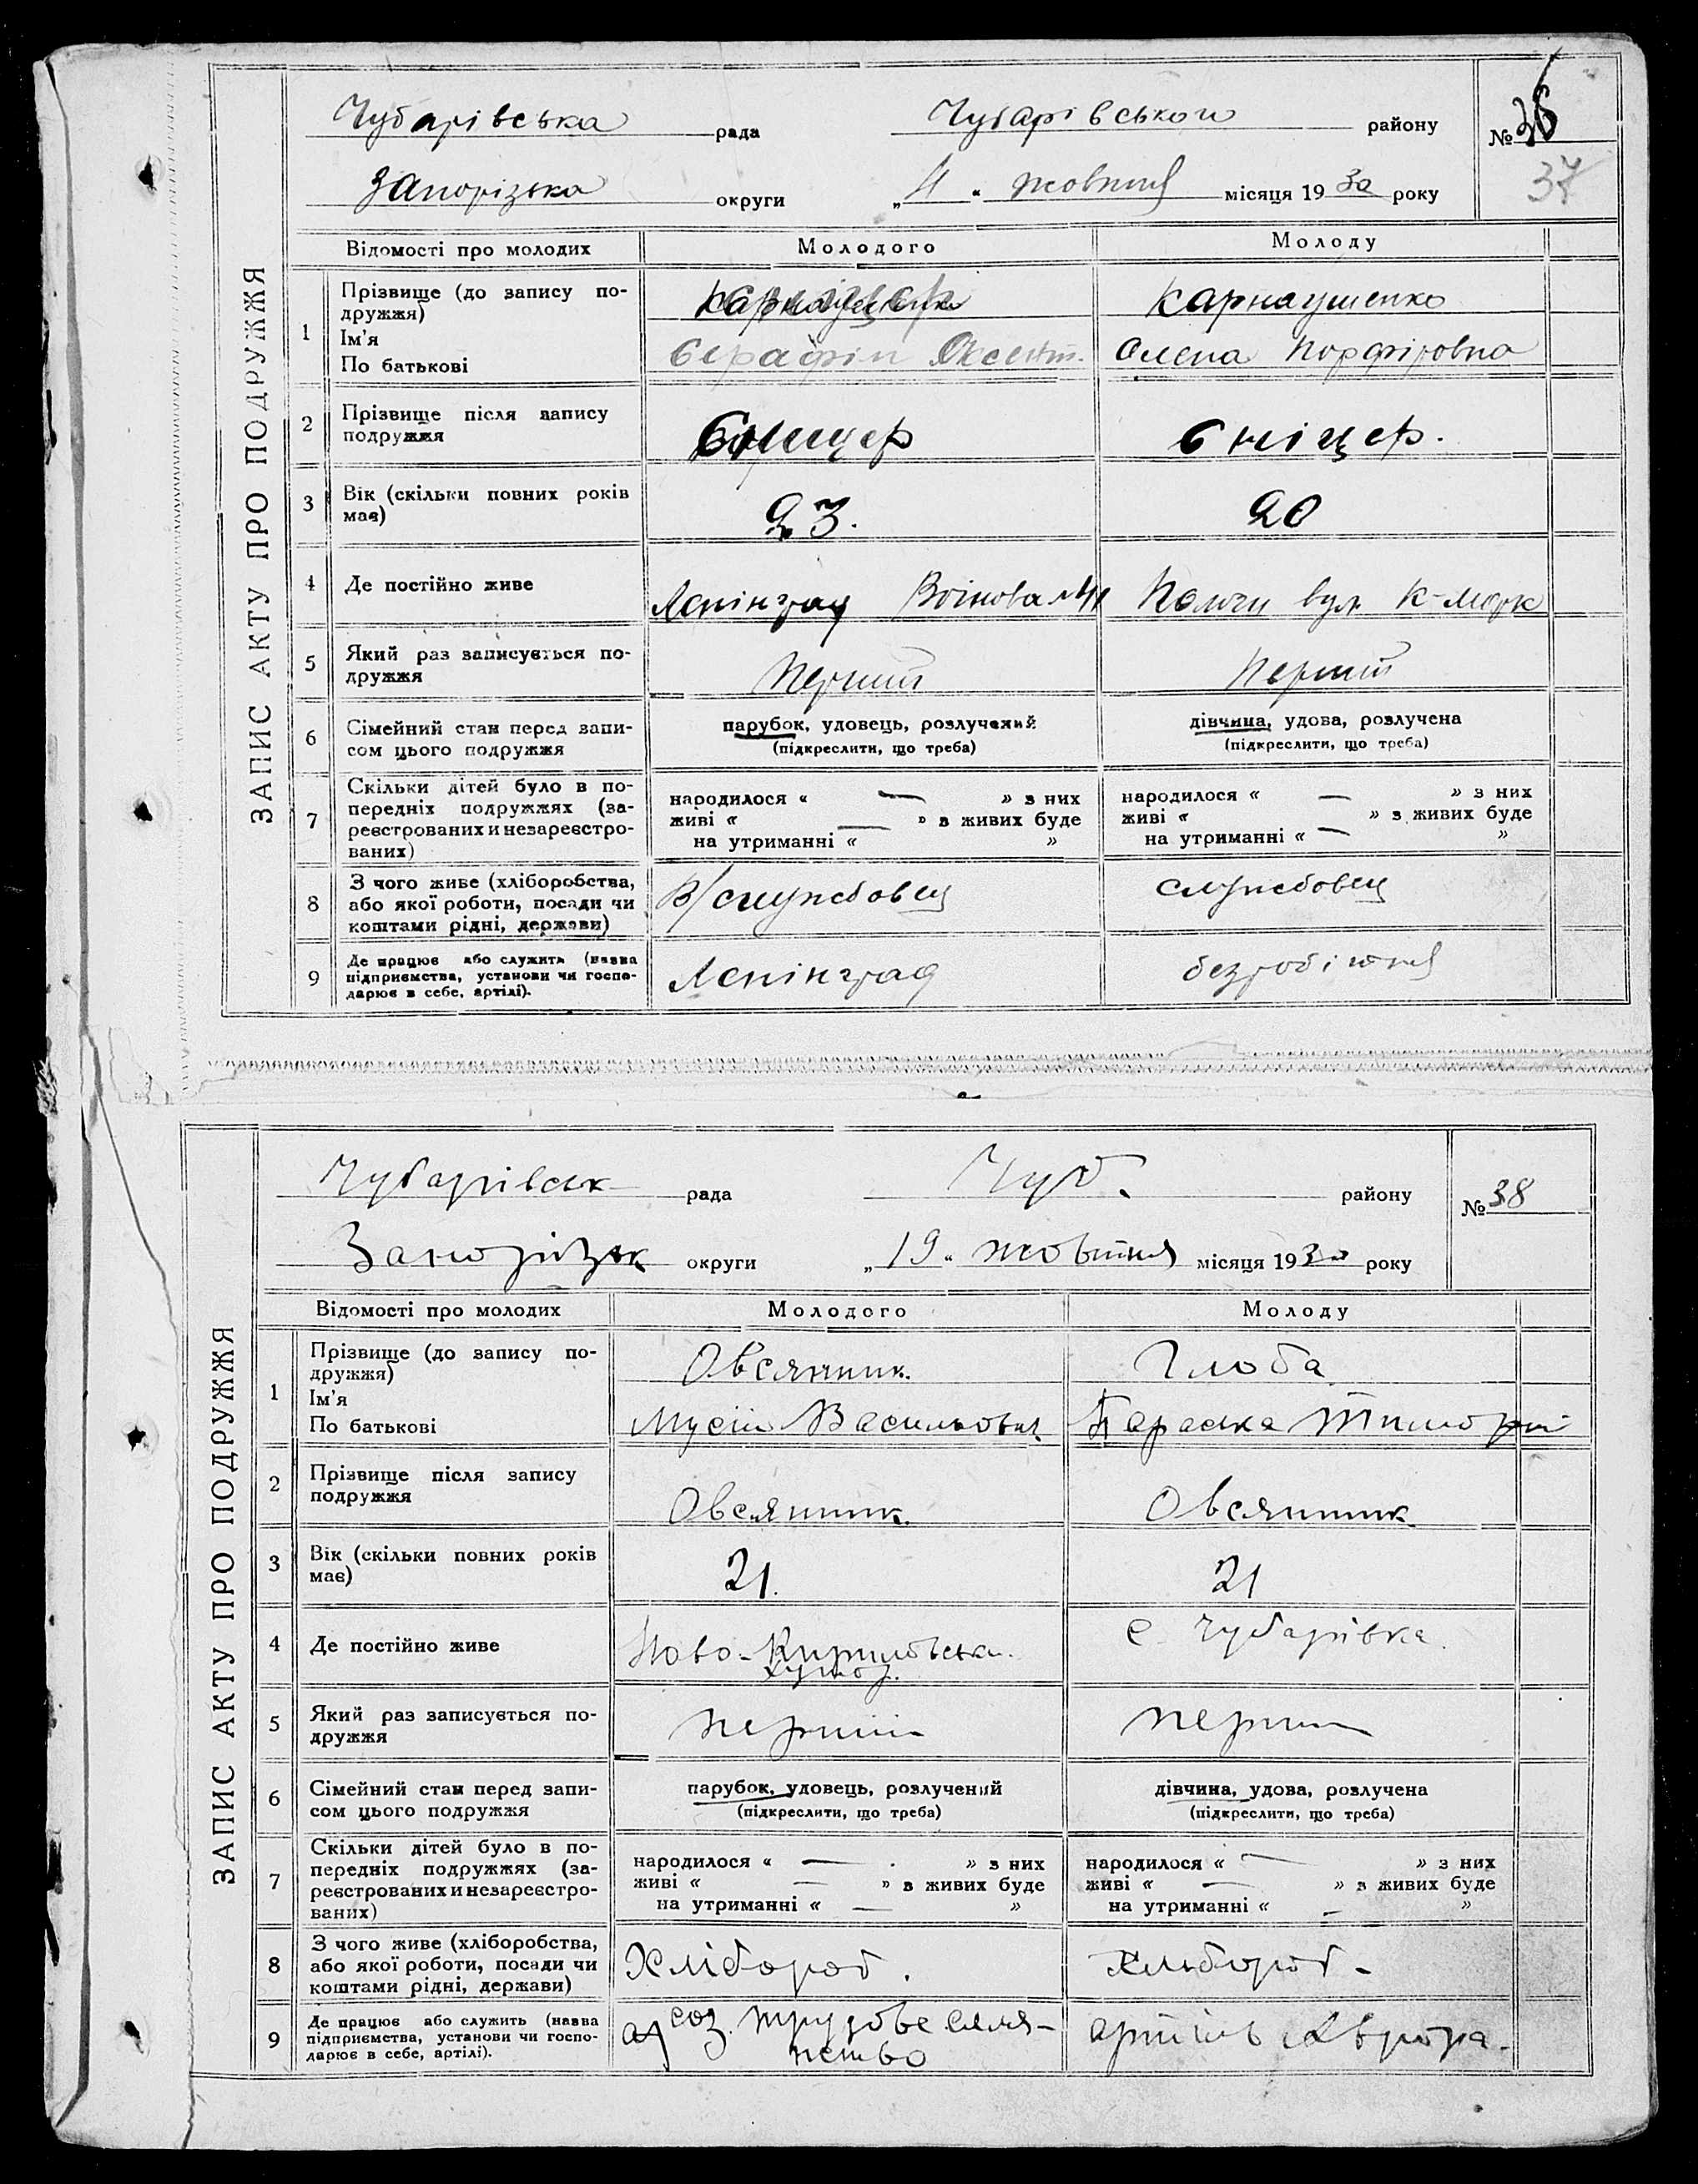 ЗАПИС АКТУ ПРО ПОДРУЖЖЯ
Чубарівська рада Чубарівського району № 36
37
Запорізька округи „ 11 “ жовтня місяця 19 30 року
Відомості про молодих Молодого Молоду
1 Прізвище (до запису по-
дружжя) Карнаушенко
Ім'я
По батькові Серафім Оксент. Олена Порфіровна
2 Прізвище після запису
подружжя Сніцер Сніцер.
3 Вік (скільки повних років
має) 23. 20
4 Де постійно живе Ленінград Воінова №41 Пологи вул. К-Маркс
5 Який раз записується по-
дружжя Перший Перший
6 Сімейний стан перед запи-
сом цього подружжя парубок, удовець, розлучений дівчина, удова, розлучена
(підкреслити, що треба) (підкреслити, що треба)
7 Скільки дітей було в по-
передніх подружжях (за-
реєстрованих и незареєстро-
ваних)
народилося « — » з них народилося « — » з них
живі « — » з живих буде живі « » з живих буде
на утриманні « » на утриманні « — »
8 З чого живе (хліборобства,
або якої роботи, посади чи
коштами рідні, держави) В/службовец службовец
9 Де працює або служить (назва
підприємства, установи чи госпо-
дарює в себе, артілі). Ленінград безробітня
ЗАПИС АКТУ ПРО ПОДРУЖЖЯ
Чубарівськ рада Чуб. району № 38
Запорізьк округи „ 19 “ жовтня місяця 19 30 року
Відомості про молодих Молодого Молоду
1 Прізвище (до запису по-
дружжя) Овсянник. Глоба
Ім'я
По батькові Мусій Васильович Параска Тимофій
2 Прізвище після запису
подружжя Овсянник. Овсянник
3 Вік (скільки повних років
має) 21. 21
4 Де постійно живе Ново-Кирилівськи. с. Чубарівка.
хутор.
5 Який раз записується по-
дружжя перший перший
6 Сімейний стан перед запи-
сом цього подружжя парубок, удовець, розлучений дівчина, удова, розлучена
(підкреслити, що треба) (підкреслити, що треба)
7 Скільки дітей було в по-
передніх подружжях (за-
реєстрованих и незареєстро-
ваних)
народилося « — » з них народилося « — » з них
живі « — » з живих буде живі « — » з живих буде
на утриманні « — » на утриманні « — »
8 З чого живе (хліборобства,
або якої роботи, посади чи
коштами рідні, держави) Хлібороб. Хлібороб -
9 Де працює або служить (назва
підприємства, установи чи госпо-
дарює в себе, артілі). соз. трудове селя-
нство артіль Аврора.